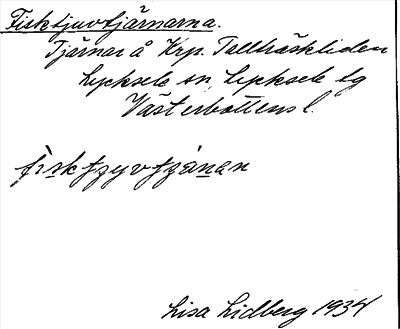 Fisktjuvtjärnarna.
Tjärnar å Krp. Tallträskliden
Lycksele sn, Lycksele lg
Västerbottens l.
fisktjyvtjänan
Lisa Lidberg 1934